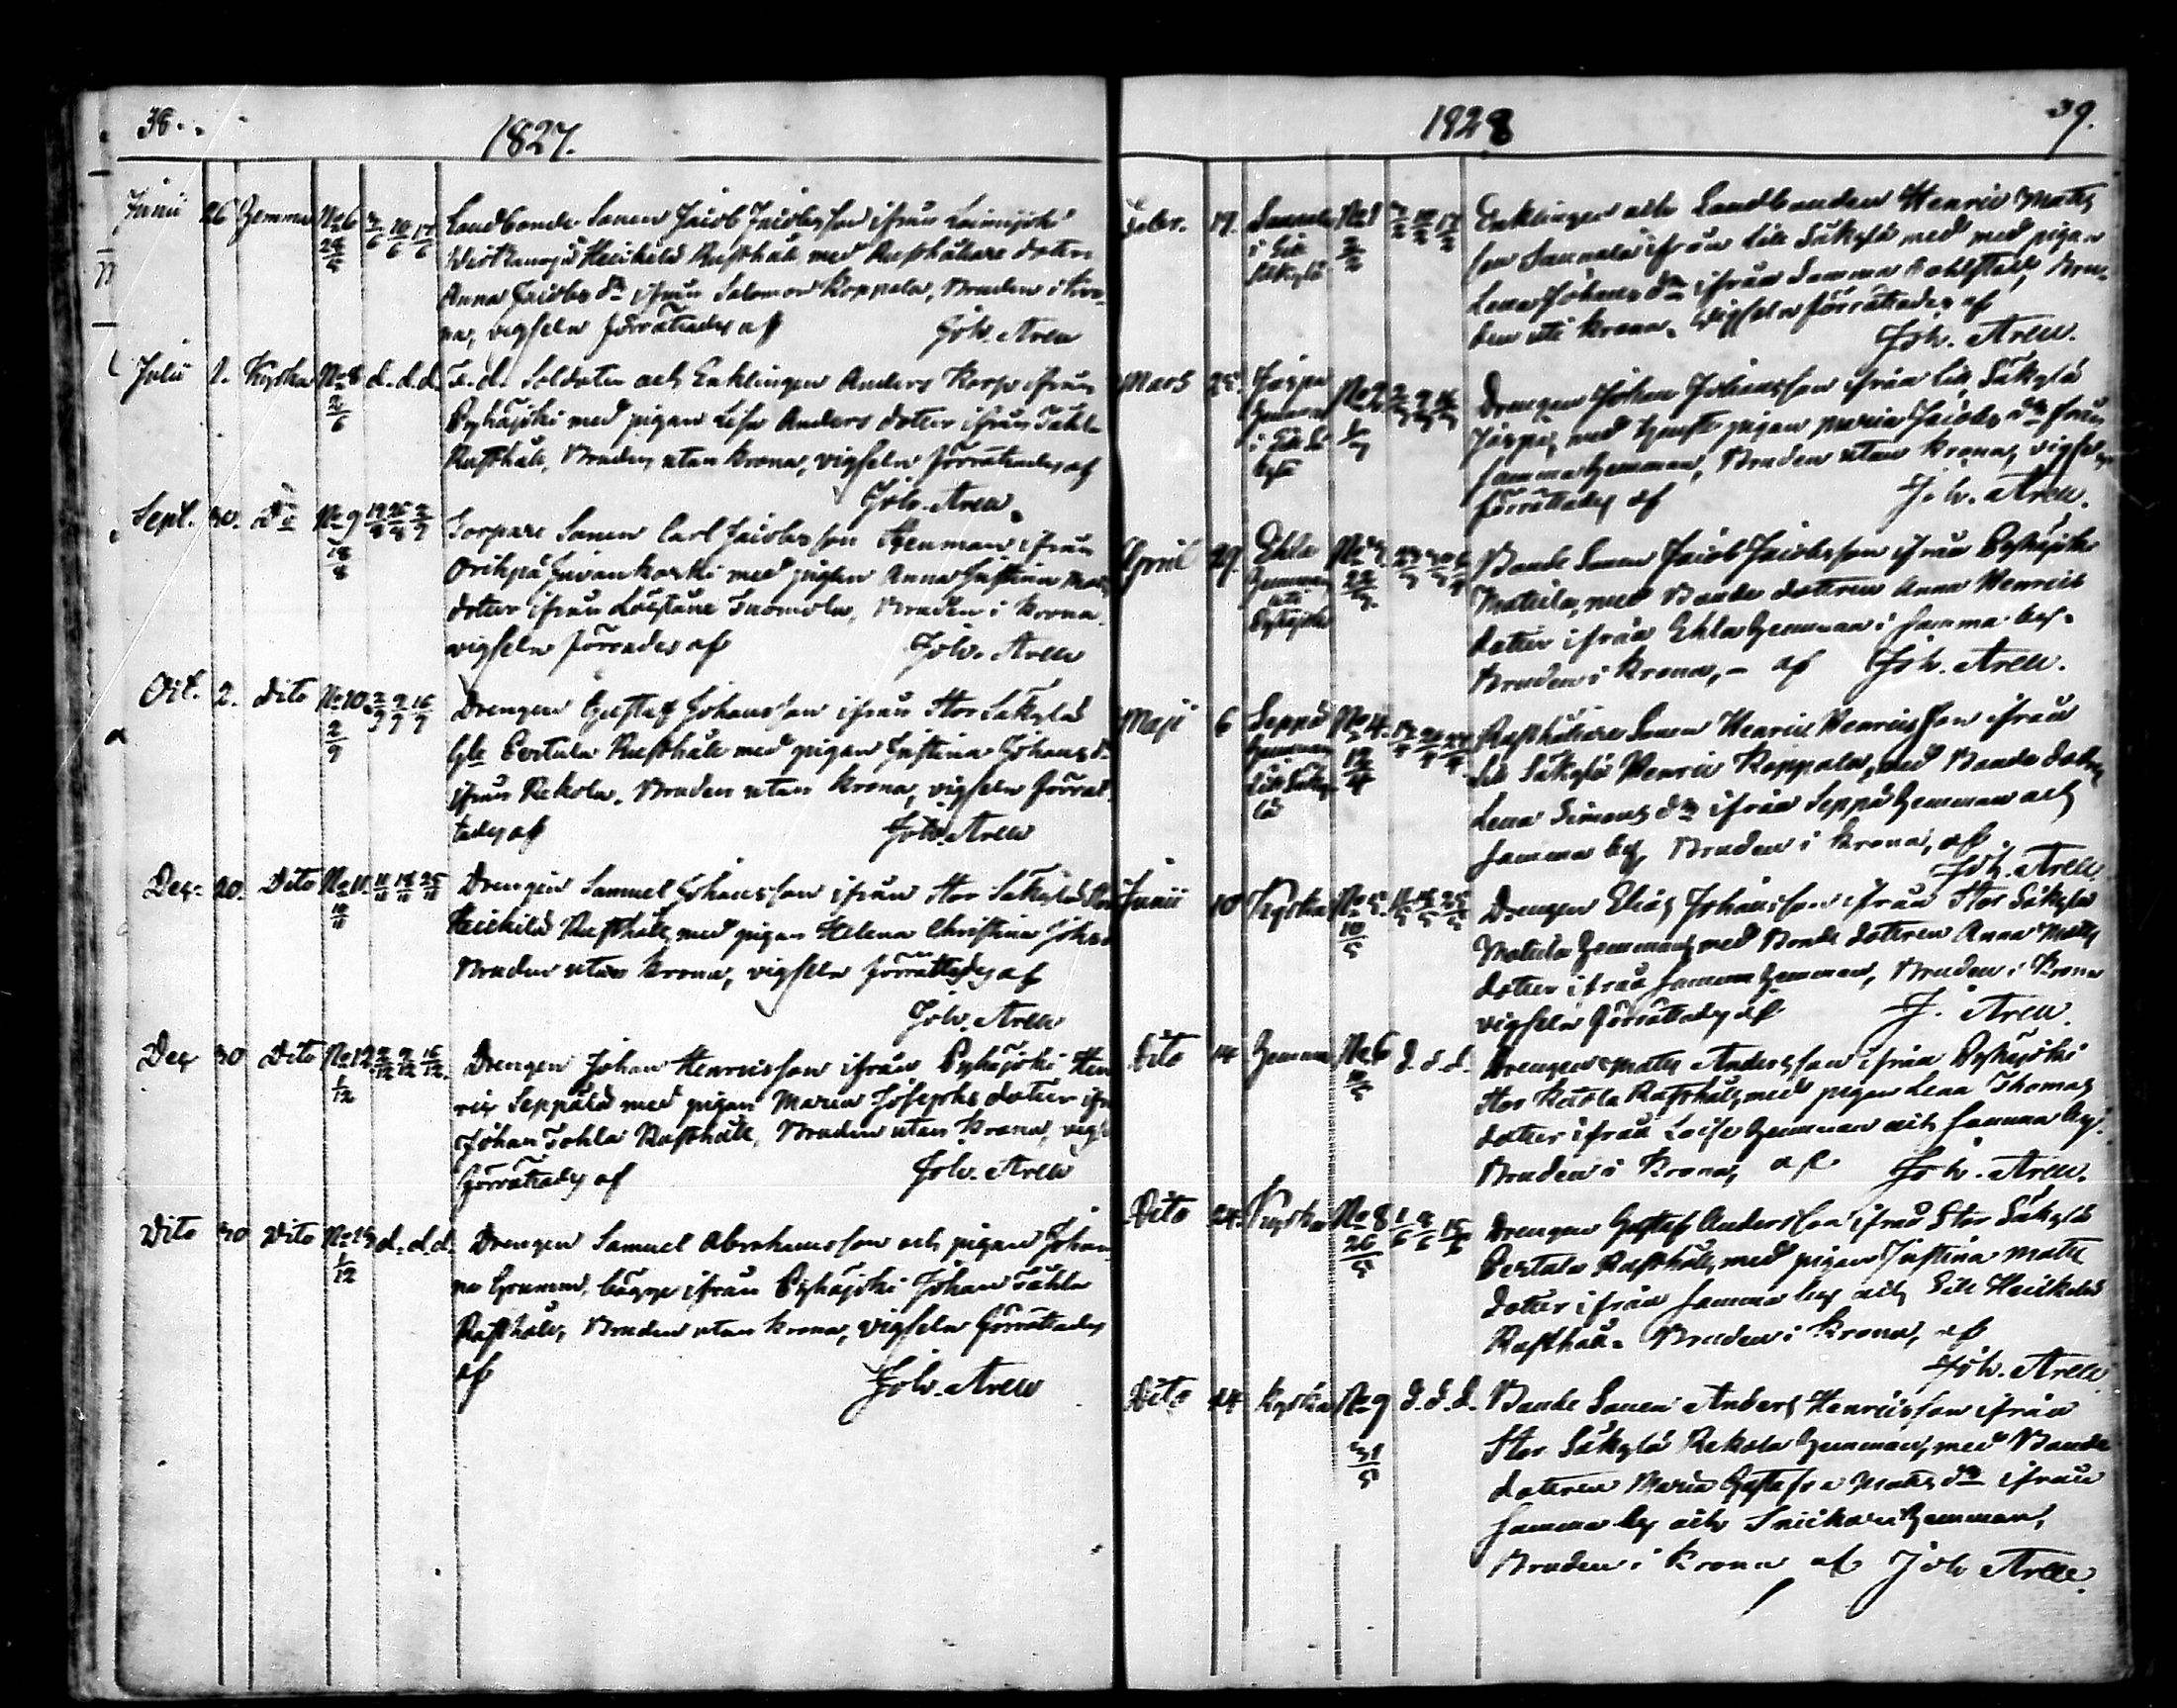 38.
1827.
Junii 26 Hemma No 6 28/5 3/6 10/6 17/6 Landbonde Sonen Jacob Jacobsson ifrån Loimijoki
Heickilä Rusthåll med Rusthållare dotren
Anna Jacobs dr ifrån Salomon Koppala, Bruden i Kro-
na, vigseln förrättades af Joh. Areen
Julii 1. Kyrkan No 8 2/6 d. d. d. F.d. Soldaten och Enklingen Anders Korp ifrån
Pyhäjoki med pigan Lisa Anders dotter ifrån Tahla
Rusthåll, Bruden utan krona, vigseln förrättades af
Joh. Areen.
Sept. 30. Do No 9 18/8 19/8 26/8 2/9 Torpare Sonen Carl Jacobsson Stenman ifrån
Oripää Juvankoski med pigan Anna Justina Mats
dotter ifrån Tuomola, Bruden i krona
vigseln förrades af Joh. Areen
Oct. 2. Dito No 10. 2/9 2/9 9/9 16/9 Drengen Gustaf Johansson ifrån Stor Säkylä
Bertula Rusthåll med pigan Justina Johans dr
ifrån Rekola. Bruden utan krona, vigseln förrät-
tades af Joh. Areen
Dec. 20. Dito No 11. 10/11 11/11 18/11 25/11 Drengen Samuel Johansson ifrån Stor Säkylä Stor
Heickilä Rusthåll, med pigan Helena Christina Johans
Bruden utan krona, vigseln förrättades af
Joh. Areen
Dec 30 Dito No 12 1/12 2/12 9/12 16/12 Drengen Johan Henricsson ifrån Pyhäjoki Hen
ric Seppälä med pigan Maria Josephs dotter ifr
Johan Tahla Rusthåll, Bruden utan krona, vigs
förrättades af Joh. Areen
Dito 30 Dito No 13 1/12 d. d. d. Drengen Samuel Abrahamsson och pigan Johan
na Gramm, bägge ifrån Pyhäjoki Johan Tähla
Rusthåll, Bruden utan krona, vigseln förrättades
af Joh. Areen
1828
39.
Febr. 19. Sannala i Lill Säkylä No 1 2/2 3/2 10/2 17/2 Enklingen och Landbonden Henric Mats
son Sannala ifrån Lill Säkylä med med pigan
Lena Johans dr ifrån Samma, Bru-
den uti krona. Vigseln förrättades af
Joh. Areen.
Mars 25. Jaspa Hemman i Lill Säkylä No 2 1/3 2/3 9/3 16/3 Drengen Johan Johansson ifrån Lill Säkylä
Jaspa, med pigan Maria Jacobs dr från
samma hemman, Bruden utan krona, vigseln
förrättades af Joh. Areen.
April 29. Ehla Hemman uti Pyhäjoki No 3. 22/3 23/3 30/3 6/4 Bonde Sonen Jacob Jacobsson ifrån Pyhäjoki
Mattila, med Bonde dotren Anna Henrics
dotter ifrån Ehla hemman i samma by.
Bruden i krona, - af Joh. Areen.
Maji 6 Seppä Hemman Lill Säkylä No 4. 12/4 13/4 20/4 27/4 Rusthållare Sonen Henric Henricsson ifrån
Lill Säkylä Henric Koppala, med Bonde dotren
Lena Simons dr ifrån Seppä hemman och
samma by, Bruden i krona, af
Joh. Areen.
Junii 10 Kyrkan No 5. 10/5 11/5 18/5 25/5 Drengen Elias Johansson ifrån Stor Säkylä
Matula hemman, med Bonde dotren Anna Mats
dotter ifrån samma hemman, Bruden i krona
vigseln förrättades af J. Areen.
Dito 14 Hemma No 6 d. d. d. Drengen Mats Andersson ifrån Pyhäjoki
Stor Ketola Rusthåll, med pigan Lena Thomas
dotter ifrån hemman och samma by.
Bruden i krona, af Joh. Areen.
Dito 24. Kyrkan No 8 26/5 1/6 8/6 15/6 Drengen Gustaf Andersson ifrån Stor Säkylä
Bertula Rusthåll, med pigan Justina Mats
dotter ifrån samma by och Lill Heickilä
Rusthåll. Bruden i krona, af
Joh. Areen.
Dito 24 Kyrkan No 9 31/5 d. d. d. Bonde Sonen Anders Henricsson ifrån
Stor Säkylä Rekola hemman, med Bonde
dotren Maria Gustafva Mats dr ifrån
samma by och Snickari hemman,
Bruden i krona af Joh Areen.